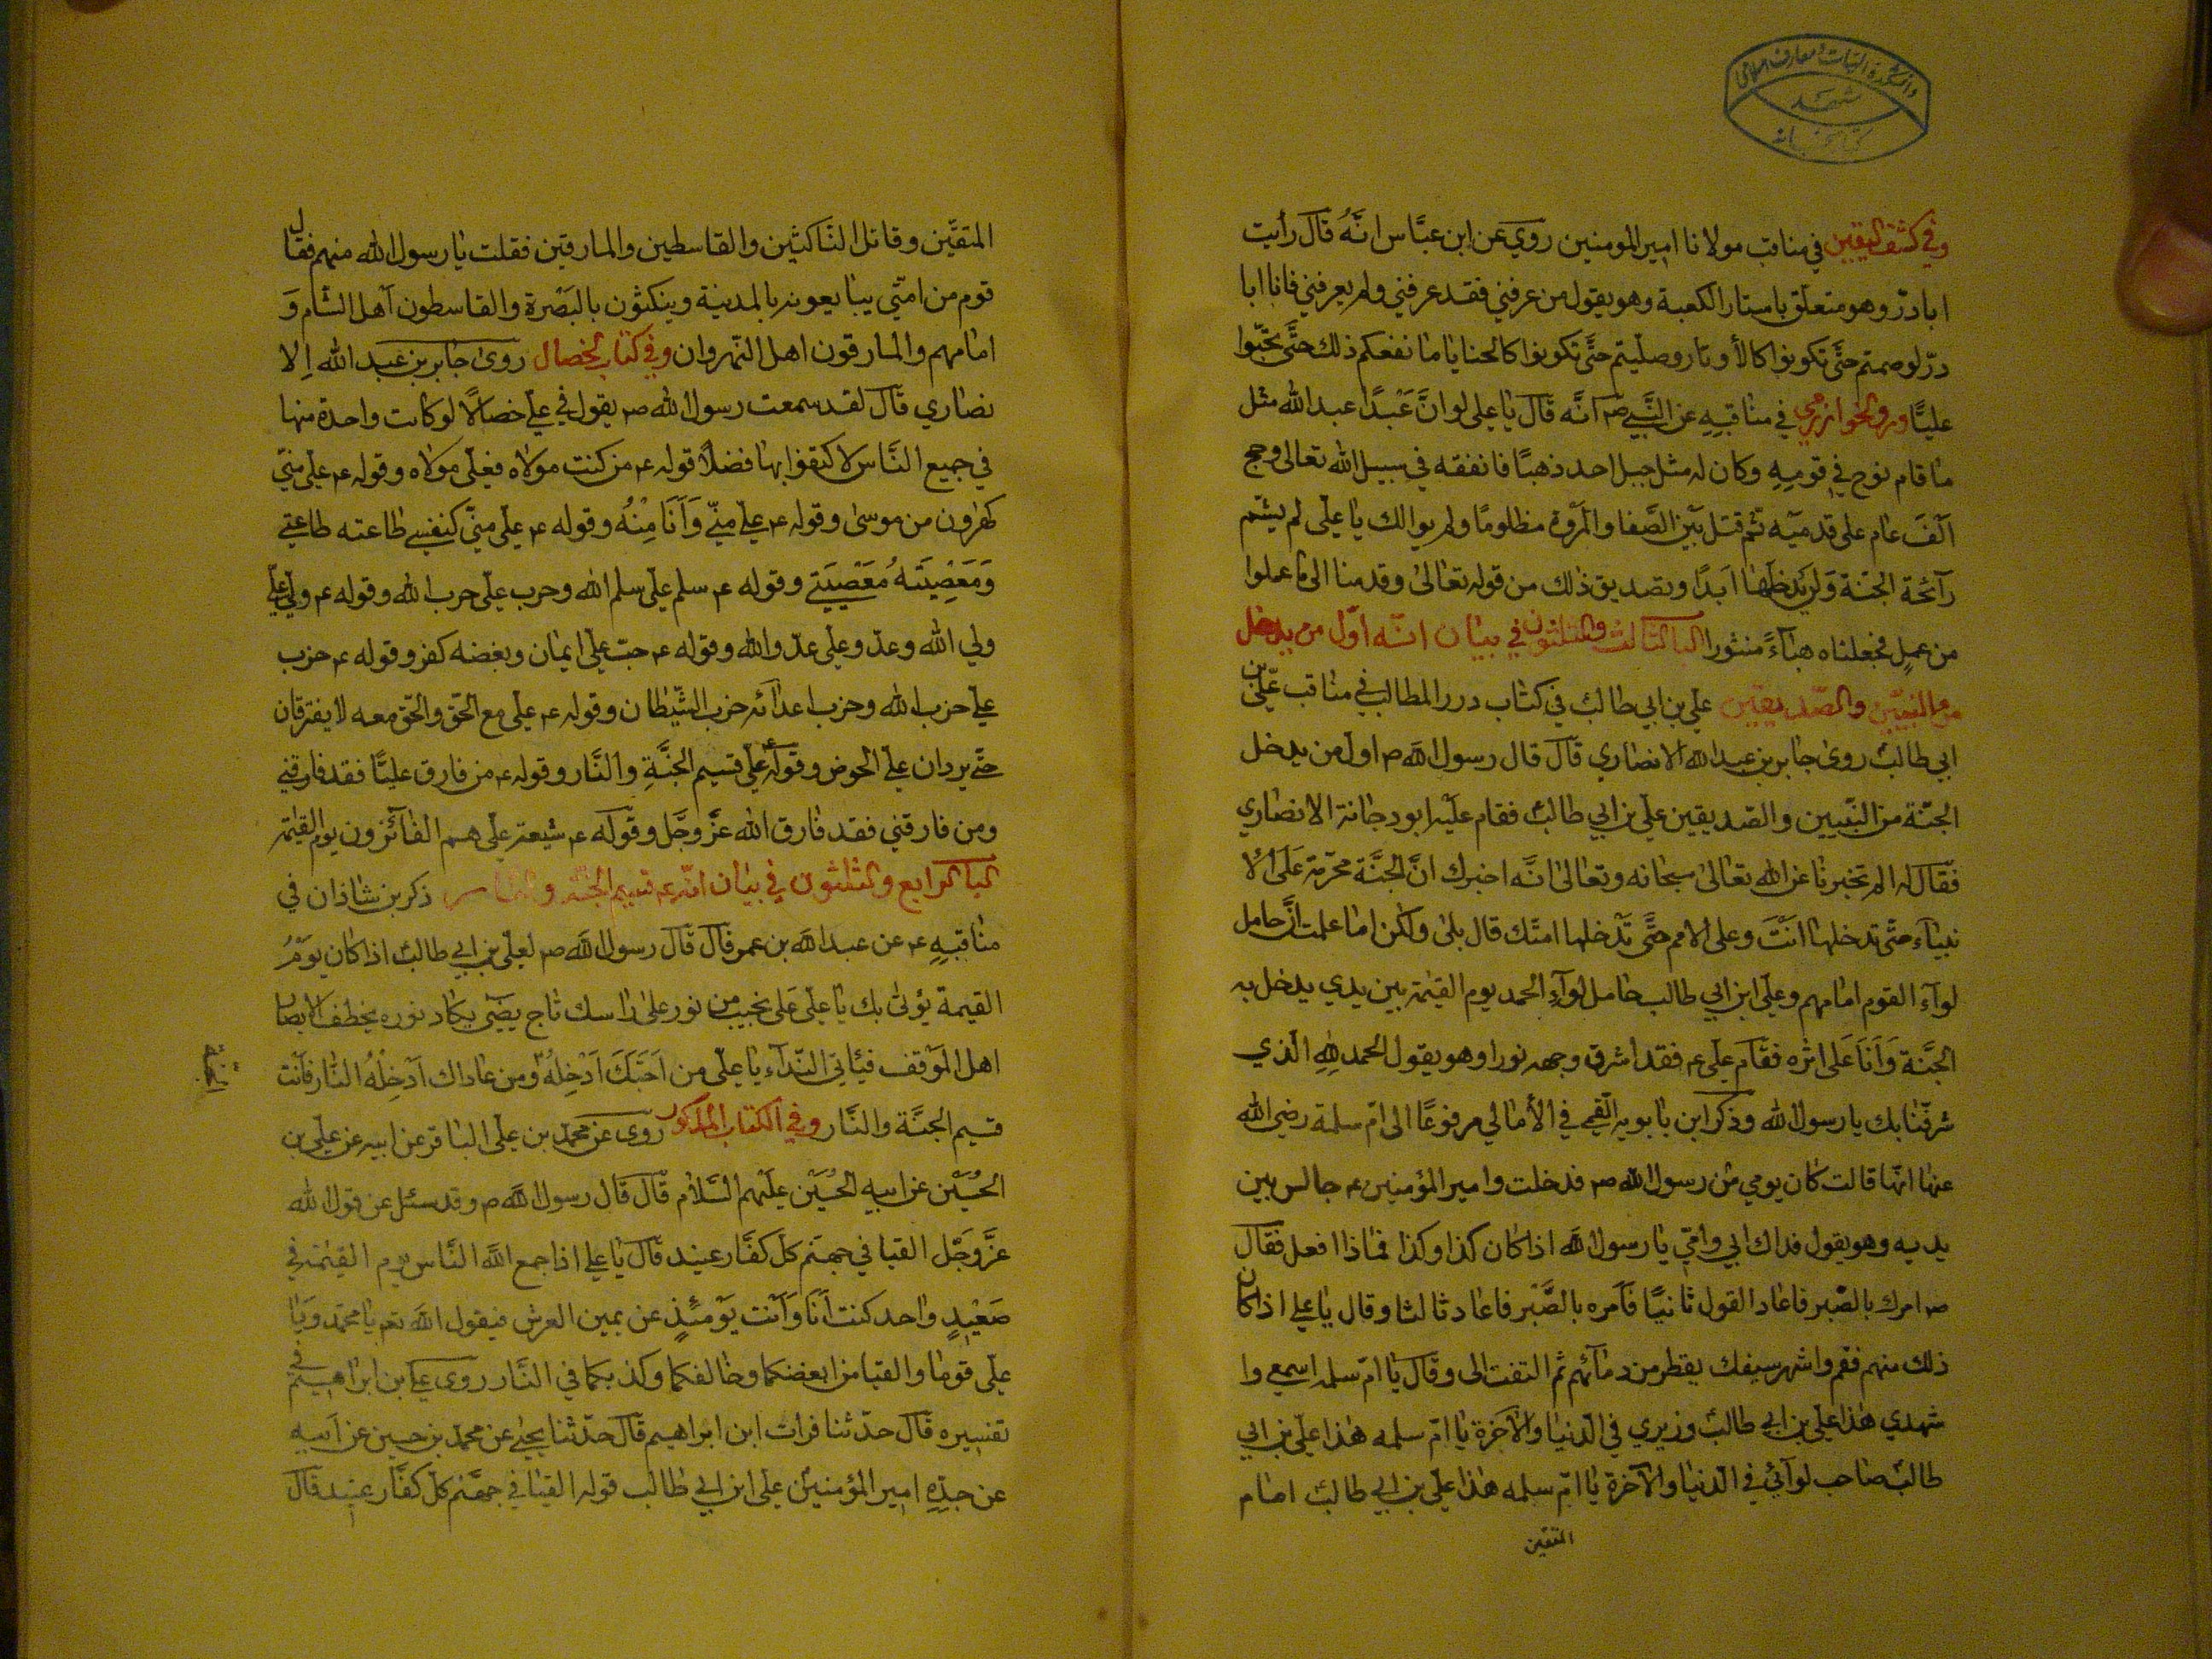 دانشکده الهیات و معارف اسلامی
مشهد
کتابخانه
وفي كشف اليقين في مناقب مولانا امير المومنين روي عن ابن عبّاس انّهُ قال رأيت
اباذرّ وهو متعلّق باستار الكعبة وهو يقول من عرفني فقد عرفني ولم يعرفني فانا ابا
ذرّ لو صمتم حتَّى تكونوا كالأوتار وصليتم حتَّى تكونوا كالحنايا ما نفعكم ذلك حتَّى تحبّوا
عليًّا وروى الخوارزمي في مناقبِهِ عن النَّبي ص انَّه قال يا علي لو انَّ عَبْدًا عبد الله مثل
ما قام نوح في قومِهِ وكان له مثل جبل احد ذهبًا فانفقه في سبيل الله تعالى وحج
اَلْفَ عام على قدميّه ثم قتل بَيْن الصَّفا والمرْوة مظلومًا ولم يوالك يا على لم يشم
رآئحة الجنّة وَلَن يَدخلها اَبدًا وتصديق ذلك من قوله تعالىٰ وقدمنا الى ما عملوا
من عملٍ فجعلناه هبآءً منثورا الباب الثالث والثلثون في بيان انّه اوّل من يدخل
من النبيّين والصّديقين علي بن ابي طالب في كتاب درر المطالب في مناقب عليّ بن
ابي طالب روىٰ جابر بن عبد الله الانصاري قال قال رسول الله ص اول من يدخل
الجنّة من النّبيين والصّديقين علي بن ابي طالب فقام عليْه ابو دجانة الانصاري
فقال له الم تخبرنا عن الله تعالىٰ سبحانه وتعالىٰ انَّه اخبرك انَّ الجنَّة محرّمة عَلَى الا
نبيآء حتّى تدخلها اَنْتَ وعلى الامم حتَّى تَدْخلها امتك قال بلىٰ ولكن اما علمت انَّ حامل
لوآء القوم امامهم وعلي ابن ابي طالب حامل لوآءِ الحمد يوم القيٰمة بين يدي يدخل به
الجنَّة وَاَنَا عَلى اثره فقام علي ع فقد اشرق وجهه نورا وهو يقول الحمد للهِ الّذي
شرفّنا بك يا رسول الله وذكر ابن بابويه القمي في الأمالي مرفوعًا الى امّ سلمة رضي الله
عنها انّها قالت كان يومي من رسول الله ص فدخلت وامير المؤمنين ع جالس بين
يديه وهو يقول فداك ابي وامّي يا رسول الله اذا كان كذا وكذا فماذا افعل فقال
ص امرك بالصّبر فاعاد القول ثانيًا فَاَمره بالصَّبْر فاعاد ثالثا وقال يا علي اذا كان
ذلك منهم فقم واشهر سيفك يقطر من دمآئهم ثم التفت الى وقال يا امّ سلمه اسمعي وا
شهدي هٰذا علي بن ابي طالب وزيري في الدنيا والآخرة يا امّ سلمه هٰذا علي بن ابي
طالب صاحب لوآئي في الدّنيا والآخرة يا امّ سلمه هٰذا علي بن ابي طالب امام
المتقين
المتقّين وقاتل النّاكثين والقاسطين والمارقين فقلت يا رسول الله منهم فقال
قوم من امتّي يبايعونه بالمدينة وينكثون بالبَصْرة والقاسطون اَهل الشام وَ
امامهم والمارقون اهل النّهروان وفي كتاب الخصال روىٰ جابر بن عبد الله اِلا
نصاري قال لقد سمعت رسول الله ص يقول في عليّ خصالًا لو كانت واحدة منها
في جميع النَّاس لاكتفوا بها فضلًا قوله ع من كنت مولاه فعليّ مولاه وقوله ع عليّ منّي
كهرون من موسىٰ وقوله ع عليّ منّي وَاَنَا مِنْهُ وقوله ع عليّ منّي كنفسي طاعته طاعتي
وَمَعْصِيَتهُ مَعْصِيَتي وقوله ع سلم عليّ سلم الله وحرب عليّ حرب الله وقوله ع وليّ عليّ
ولي الله وعدوّ علي عدوّ الله وقوله ع حبّ عليّ ايمان وبغضه كفر وقوله ع حزب
علي حزب الله وحزب اعدآئه حزب الشّيطان وقوله ع علي مع الحقّ والحقّ معه لا يفترقان
حتّى يردان علي الحوض وقوله ع علي قسيم الجنَّةِ والنَّار وقوله ع من فارق عليًّا فقد فارقني
ومن فارقني فقد فارق الله عزَّ وجَّل وقوله ع شيعة علي هم الفآئزون يوم القيٰمة
الباب الرابع والثلثون في بيان انّه ع قسيم الجنّة والنار ذكر بن شاذان في
مناقبِهِ ع عن عبد الله بن عمر قال قال رسول الله ص لعليّ بن ابي طالب اذا كان يَوْمُ
القيمة يؤتىٰ بك يا علي عَلى نجيب من نور علىٰ راسك تاج يضيٓ يكاد نوره يخطف الابصار
اهل الموقف فيأتي النّدآء يا عليّ من اَحَبَّكَ اَدْخِلْهُ ومن عاداك اَدْخِلْهُ النّار فَاَنت
قسيم الجنَّة والنَّار وفي الكتاب المذكور روى عن محمّد بن علي الباقر عن ابيه عن علي بن
الحُسَيْن عن ابيهِ الحُسَيْن عليْهم السَّلام قال قال رسول الله ص وقد سئل عن قول الله
عزَّ وجَّل القيا في جهنّم كل كفَّار عنيد قال يا علي اذا جمع الله النَّاس يوم القيٰمة في
صَعْيدٍ واحد كنت اَنَا وَاَنْت يَوْمئذٍ عن يمين العرش فيقول الله تع يا محمّد وَيَا
علي قوما والقيا من ابغضكما وخالفكما وكذبكما في النَّار روى علي بن ابراهيم في
تفسيره قال حدّثنا فرات ابن ابراهيم قال حدّثنا يحيٰى عن محمّد بن حسين عن ابيه
عن جدّهِ امير المؤمنين علي ابن ابي طالب قوله القيا في جهنّم كلّ كفَّار عنيد قال